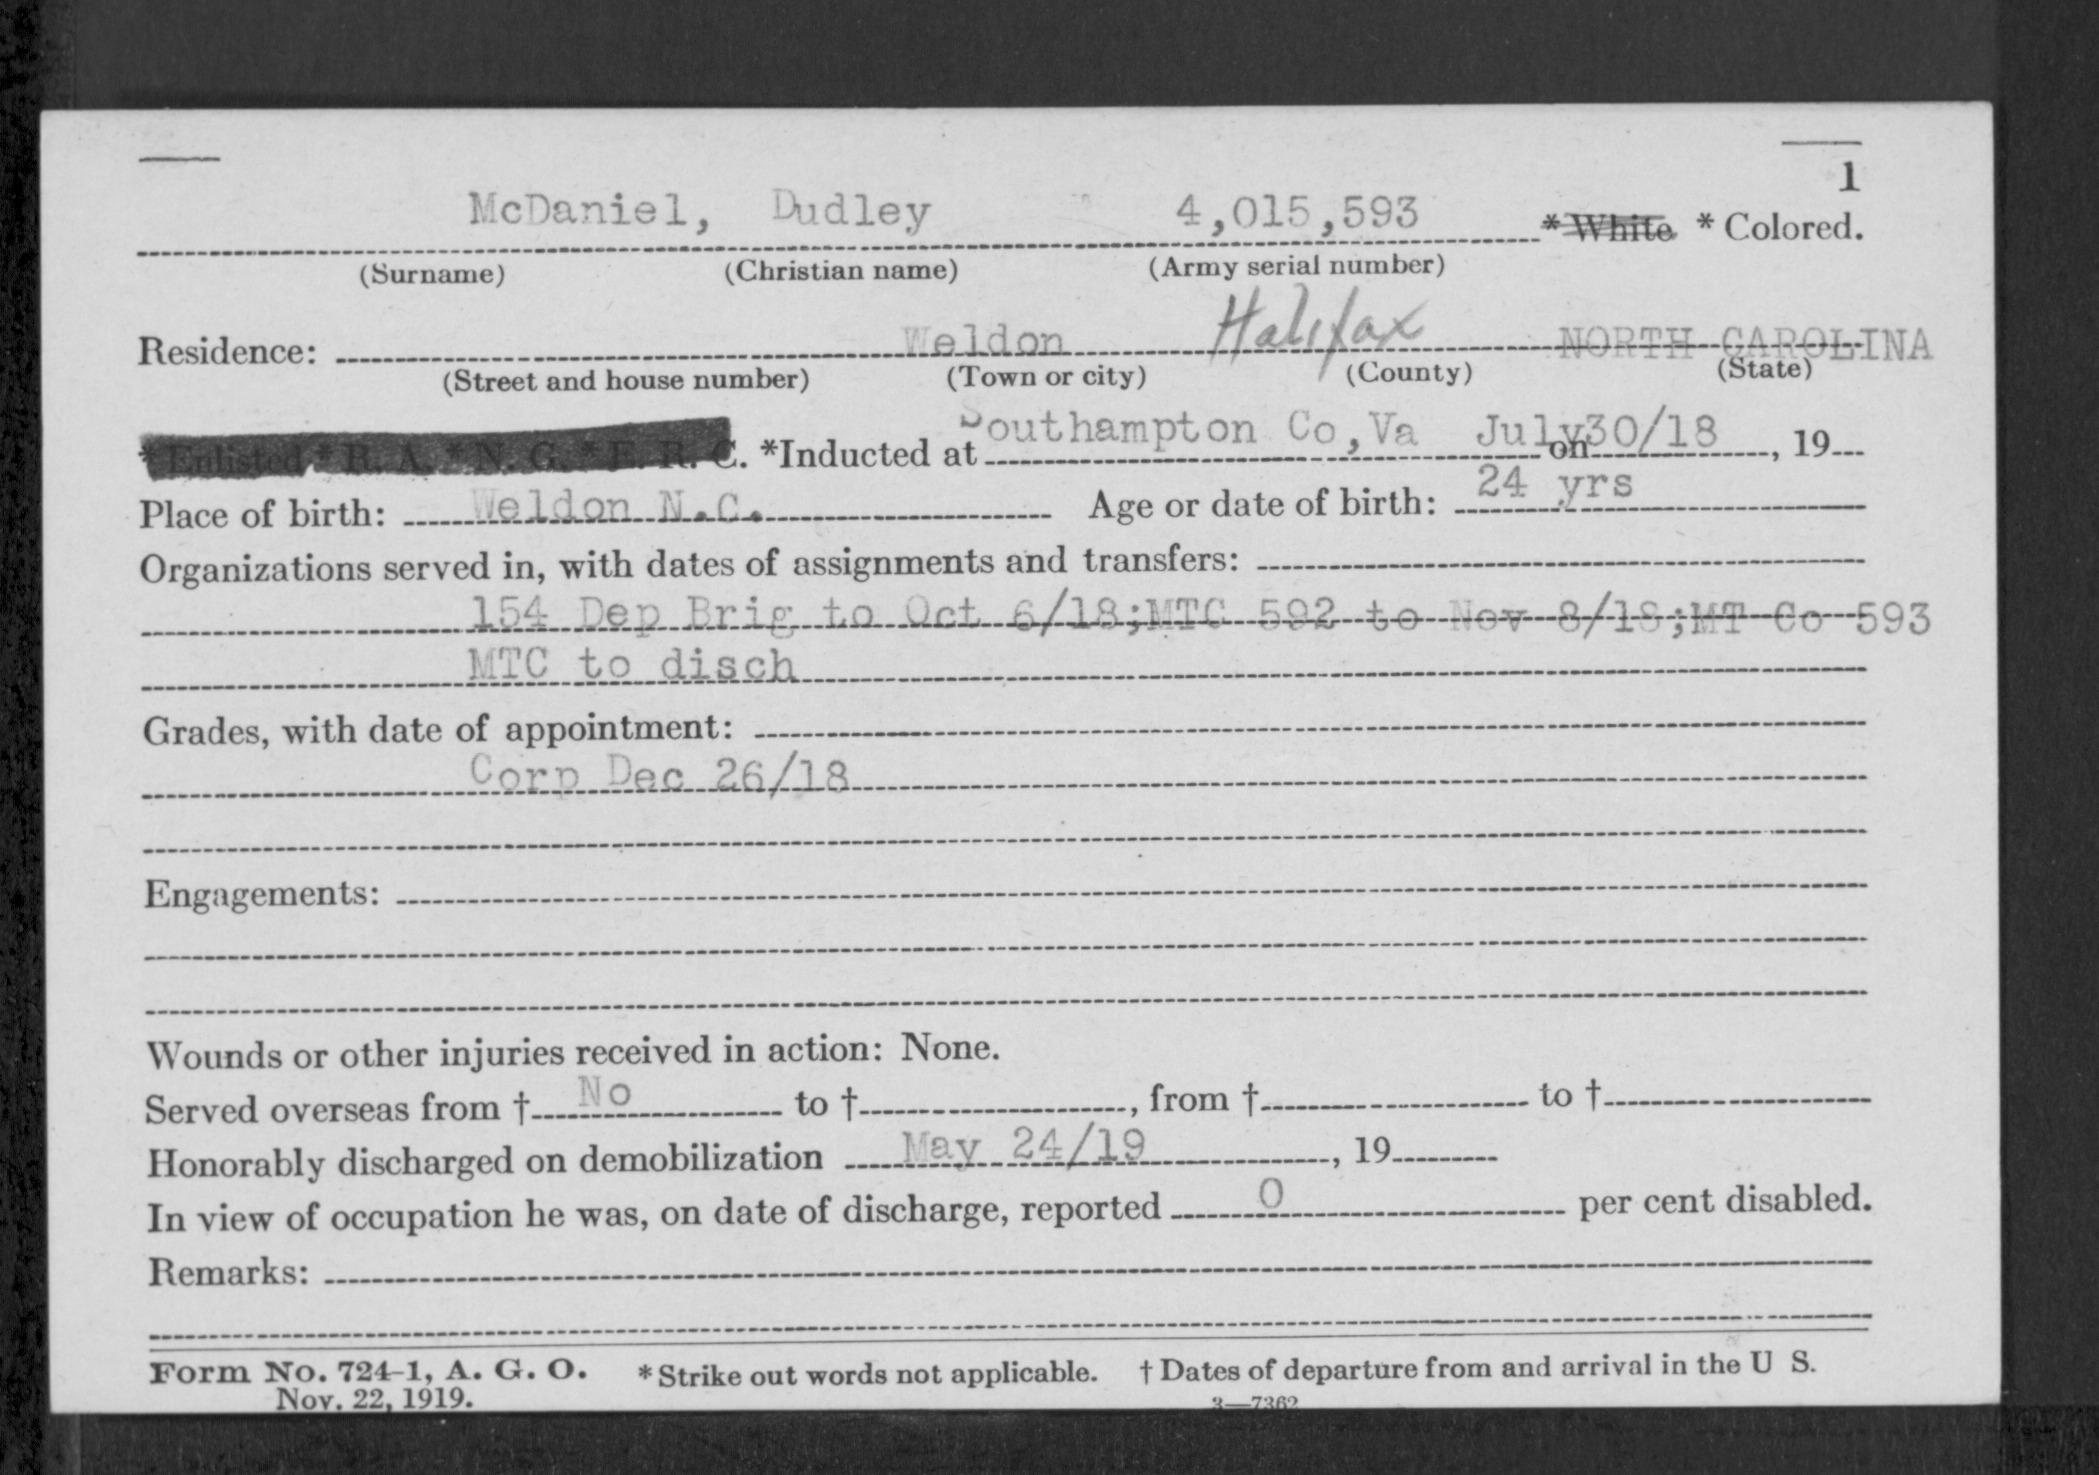 1
McDaniel, Dudley 4,015,593 * White * Colored.
(Surname) (Christian name) (Army serial number)
Residence: Weldon Halifax NORTH CAROLINA
(Street and house number) (Town or city) (County) (State)
* Enlisted * R. A. * N. G. * E. R. C. *Inducted at Southampton Co,Va July on 30/18, 19
Place of birth: Weldon N.C. Age or date of birth: 24 yrs
Organizations served in, with dates of assignments and transfers:
154 Dep Brig to Oct 6/18;MTC 592 to Nov 8/18;MT Co 593
MTC to disch
Grades, with date of appointment:
Corp Dec 26/18
Engagements:
Wounds or other injuries received in action: None.
Served overseas from † No to †, from † to †
Honorably discharged on demobilization May 24/19, 19
In view of occupation he was, on date of discharge, reported 0 per cent disabled.
Remarks:
Form No. 724-1, A. G. O. * Strike out words not applicable. † Dates of departure from and arrival in the U S.
Nov. 22, 1919. 3—7362